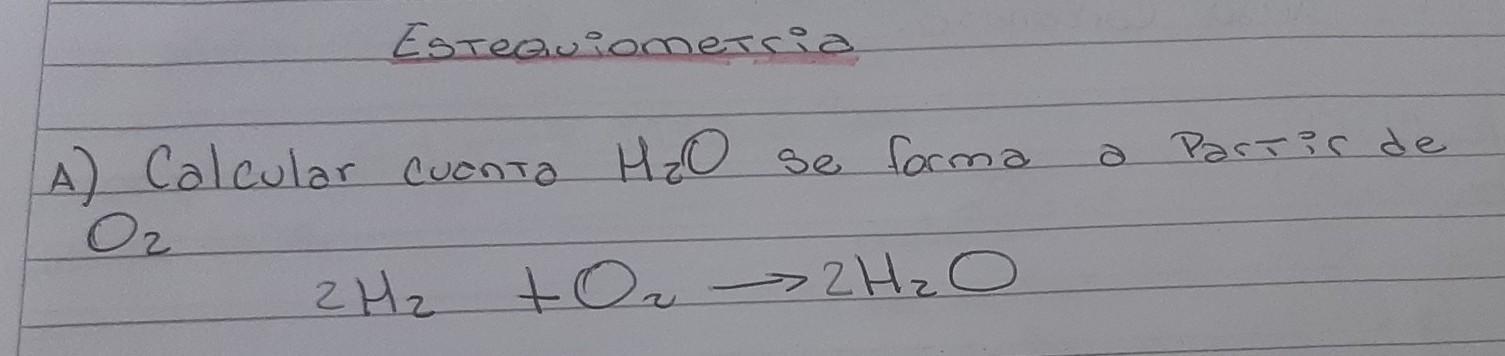 Estequiometria
A) Calcular cuanta H₂O se forma a Partir de
O₂
2H₂ + O₂ → 2H₂O